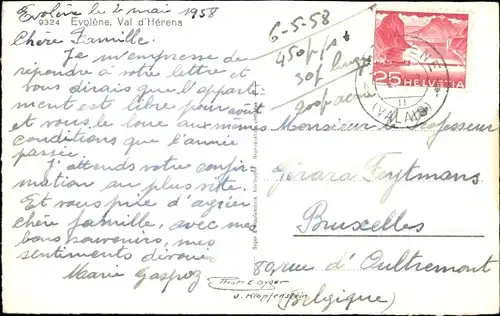 Evolène le 2 mai 1958
9324 Evolène, Val d'Hérens
Chère Famille.
Je m'empresse de
répondre à votre lettre et
vous dirais que l'appart-
ment est libre pour août
et vous le loue aux mêmes
conditions que l'année
passée.
J'attends votre confir-
mation au plus vite.
Et vous prie d'agréer
chère famille, avec mes
bons souvenirs, mes
sentiments dévoués
Marie Gaspoz
6-5-58
450f/st
30f
200f
25 HELVETIA
(VALAIS)
Monsieur le Professeur
Gérard Feytmans
Bruxelles
89 rue d'Oultremont
(Belgique)
J. Klopfenstein